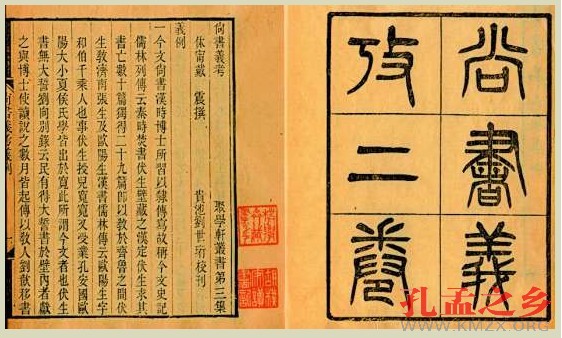 尚書義
攷二卷
尚書義考 聚學軒叢書第三集
休甯戴 震撰 貴池劉世珩校刊
義例
一今文尚書漢時博士所習以隸傳寫故稱今文史記
儒林列傳云秦時焚書伏生壁藏之漢定伏生求其
書亡數十篇獨得二十九篇卽以敎於齊魯之間伏
生敎濟南張生及歐陽生漢書儒林傳云歐陽生字
和伯千乘人也事伏生授兒寬寬又受業孔安國歐
陽大小夏侯氏學皆出於寬此所謂今文者也伏生
書無大誓劉向別錄云民有得大誓書於壁內者獻
之與博士使讀說之數月皆起傳以敎人劉歆移書
尚書義考義例
孔孟之乡
WWW.KMZX.ORG